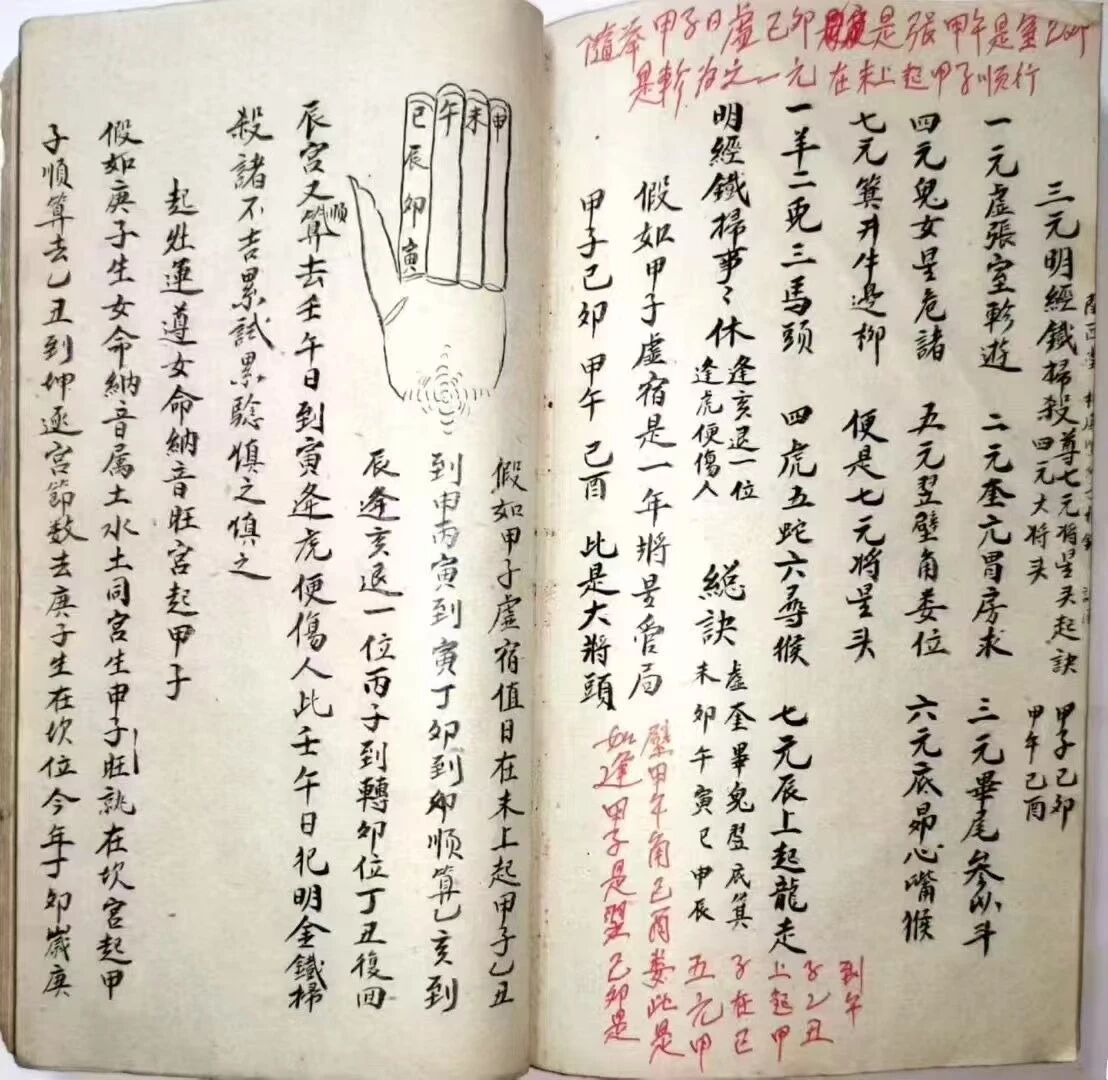 隨举甲子日虛己卯是張甲午是室己酉
是軫為之一元在未上起甲子順行
三元明經鐵掃殺尊七元將星头起訣
四元大将头
甲子己卯
甲午己酉
一元虛張室軫遊 二元奎亢胃房求 三元畢尾參以斗
四元鬼女星危諸 五元翌壁角娄位 六元底昴心嘴猴
七元箕井牛邊柳 便是七元將星头
一羊二兎三馬頭 四虎五蛇六尋猴 七元辰上起龍走
明經鐵掃事〻休
逢亥退一位
逢虎便傷人
總訣
虛奎畢鬼翌底箕
未卯午寅巳申辰
假如甲子虛宿是一年將星管局
甲子己卯 甲午 己酉 此是大將頭
到午
子乙丑
上起甲
子在巳
五元甲
壁甲午角己酉娄此是
如逢甲子是翌己卯是
申
未
午
巳
辰
卯
寅
假如甲子虛宿值日在未上起甲子乙丑
到申丙寅到寅丁卯到卯順算乙亥到
辰逢亥退一位丙子到轉卯位丁丑復回
辰宮又算去壬午日到寅逢虎便傷人此壬午日犯明金鐵掃
順
殺諸不吉累試累驗慎之慎之
起姓運遵女命納音旺宮起甲子
假如庚子生女命納音属土水土同宮生甲子旺就在坎宮起甲
子順算去乙丑到坤逐宮節数去庚子生在坎位今年丁卯歲庚